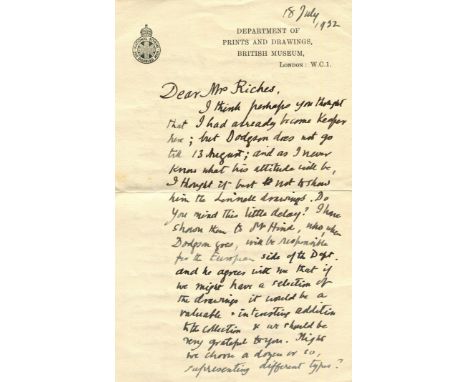 18 July
1932
DEPARTMENT OF
PRINTS AND DRAWINGS,
BRITISH MUSEUM,
LONDON: W.C.1.
Dear Mrs Riches,
I think perhaps you thought
that I had already become Keeper
here; but Dodgson does not go
till 13 August; and as I never
know what his attitude will be,
I thought it best not to show
him the Linnell drawings. Do
you mind this little delay? I have
shown them to Mr Hind, who, when
Dodgson goes, will be responsible
for the European side of the Dept.
and he agrees with me that if
we might have a selection of
the drawings it would be a
valuable & interesting addition
to the collection & we should be
very grateful to you. Might
we choose a dozen or so,
representing different types?